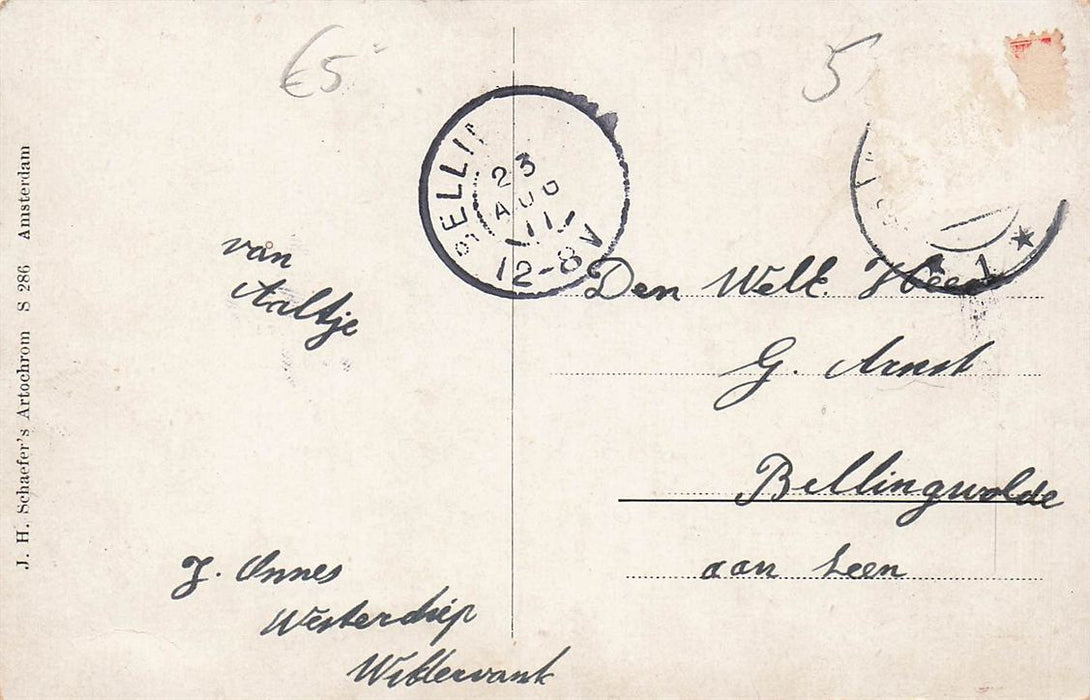 €5-
5
J. H. Schaefer's Artochrom S 286 Amsterdam
BELLI
23
AUG
11
12-8V
1
van
Aaltje
Den WelE. Heer
G. Arnst
Bellingwolde
aan Leen
J. Onnes
Westerdiep
Wildervank